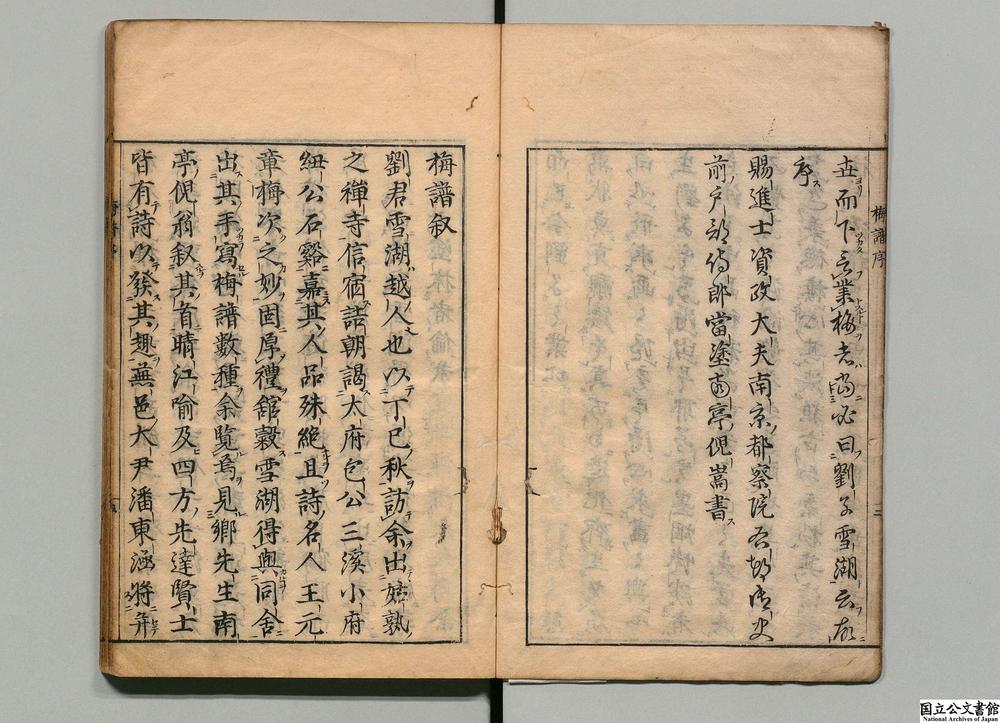 世而下言業梅者當必曰劉子雪湖云故
序
賜進士資政大夫南京都察院右都御史
前戶部侍郎當塗南亭倪嵩書
梅譜序
二
梅譜叙
劉君雪湖越人也以丁巳秋訪余出姑熟
之禪寺信宿詰朝謁太府包公三溪小府
紐公石谿嘉其人品殊絶且詩名人王元
章梅次之妙因厚禮舘穀雪湖得與同舍
出其手寫梅譜數種余覧焉見鄉先生南
亭倪翁叙其首晴江喻及四方先達賢士
皆有詩以發其趣蕪邑大尹潘東涵將并
国立公文書館
National Archives of Japan